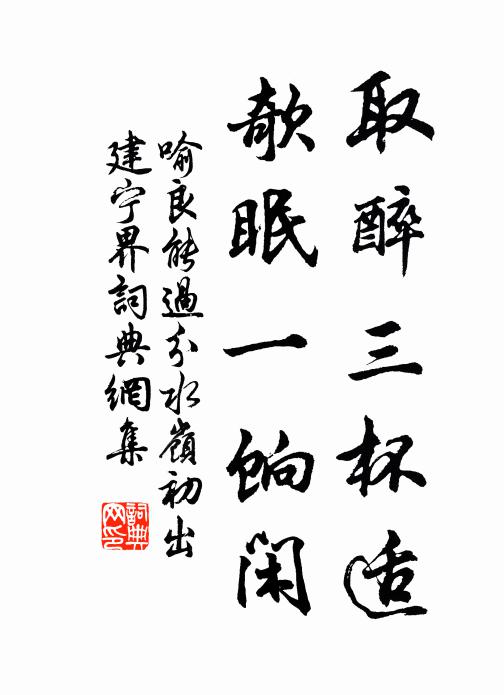 取醉三杯适
欹眠一饷闲
喻良能過分水嶺初出
建宁界詞典網集
詞典网印